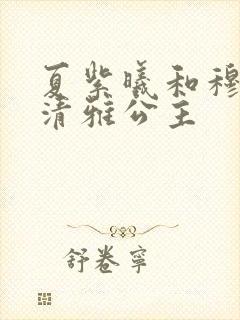 夏紫曦和穆
清雅公主
舒卷寧